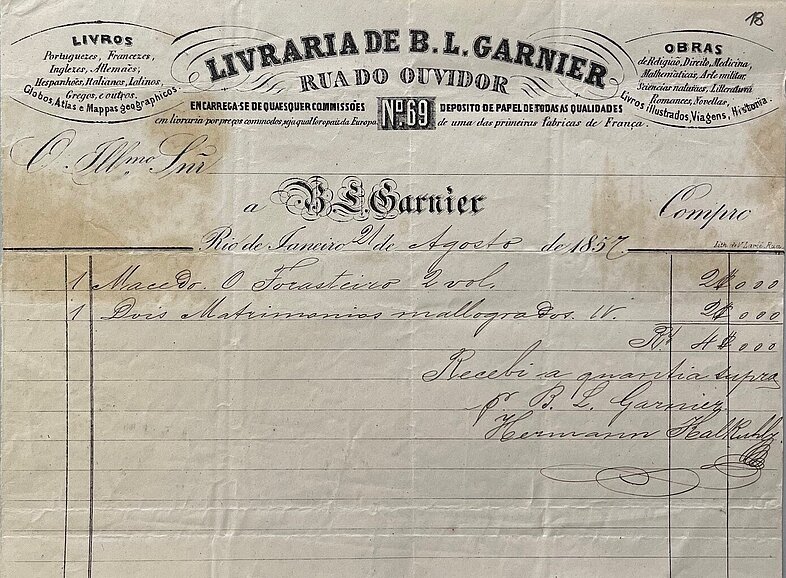 18
LIVROS
Portuguezes, Francezes,
Inglezes, Allemães,
Hespanhóes, Italianos, Latinos,
Gregos, e outros.
Globos, Atlas e Mappas geographicos
LIVRARIA DE B. L. GARNIER
RUA DO OUVIDOR
ENCARREGA-SE DE QUAESQUER COMMISSÕES
em livraria por preços commodos, seja qual for o paiz da Europa.
Nº 69
DEPOSITO DE PAPEL DE TODAS AS QUALIDADES
de uma das primeiras fabricas de França.
OBRAS
de Religião, Direito, Medicina,
Mathematicas, Arte militar,
Sciencias naturaes, Litteratura
Romances, Novellas,
Livros illustrados, Viagens, Historia.
O Illmo Snr
a B. L. Garnier Comprou
Rio de Janeiro 21 de Agosto de 1857.
1 Macedo. O Forasteiro 2 vol. 2$000
1 Dois Matrimonios mallogrados. 2$000
Rs 4$000
Recebi a quantia supra
B. L. Garnier
Hermann Kalkuhl